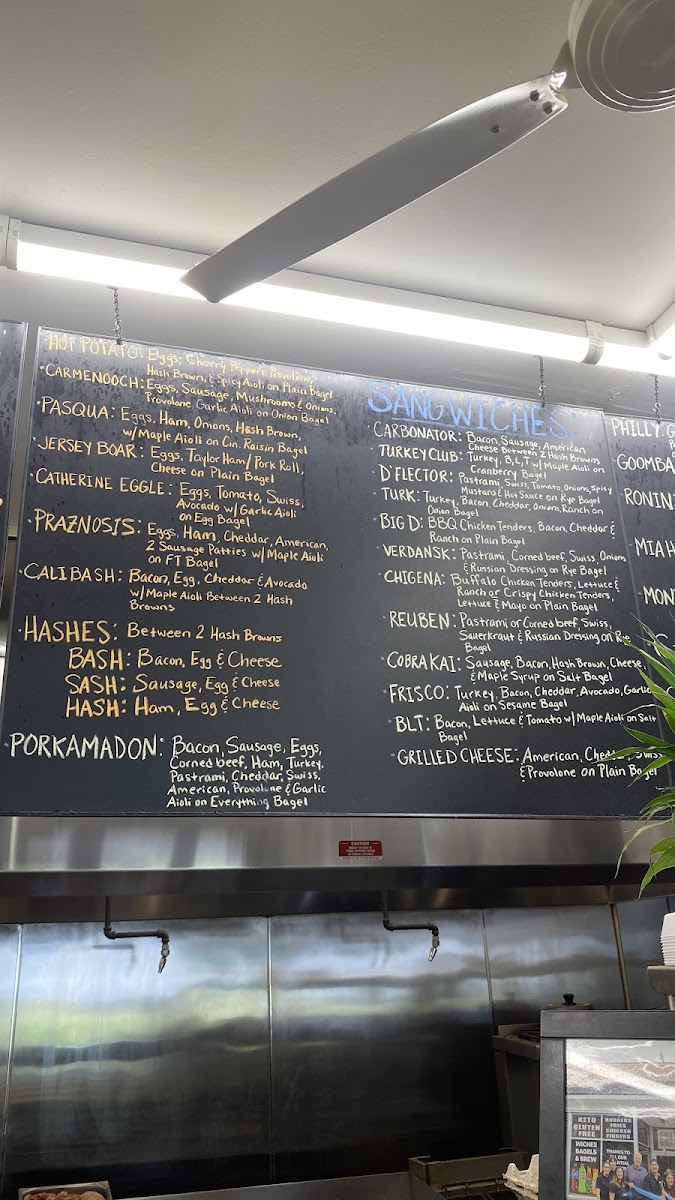 HOT POTATO: Eggs, Cherry Peppers, Provolone,
Hash Brown, & Spicy Aioli on Plain Bagel
·CARMENOOCH: Eggs, Sausage, Mushrooms & Onions,
Provolone, Garlic Aioli on Onion Bagel
·PASQUA: Eggs, Ham, Onions, Hash Brown,
w/ Maple Aioli on Cin. Raisin Bagel
·JERSEY BOAR: Eggs, Taylor Ham/Pork Roll,
Cheese on Plain Bagel
·CATHERINE EGGLE: Eggs, Tomato, Swiss,
Avocado w/ Garlic Aioli
on Egg Bagel
·PRAZNOSIS: Eggs, Ham, Cheddar, American,
2 Sausage Patties w/ Maple Aioli
on FT Bagel
·CALIBASH: Bacon, Egg, Cheddar & Avocado
w/ Maple Aioli Between 2 Hash
Browns
·HASHES: Between 2 Hash Browns
BASH: Bacon, Egg & Cheese
SASH: Sausage, Egg & Cheese
HASH: Ham, Egg & Cheese
·PORKAMADON: Bacon, Sausage, Eggs,
Corned beef, Ham, Turkey,
Pastrami, Cheddar, Swiss,
American, Provolone & Garlic
Aioli on Everything Bagel
SANGWICHES:
·CARBONATOR: Bacon, Sausage, American
Cheese Between 2 Hash Browns
·TURKEY CLUB: Turkey, B, L, T w/ Maple Aioli on
Cranberry Bagel
·D'FLECTOR: Pastrami, Swiss, Tomato, Onions, Spicy
Mustard & Hot Sauce on Rye Bagel
·TURK: Turkey, Bacon, Cheddar, Onions, Ranch on
Onion Bagel
·BIG D: BBQ Chicken Tenders, Bacon, Cheddar &
Ranch on Plain Bagel
·VERDANSK: Pastrami, Corned beef, Swiss, Onions
& Russian Dressing on Rye Bagel
·CHIGENA: Buffalo Chicken Tenders, Lettuce &
Ranch or Crispy Chicken Tenders,
Lettuce & Mayo on Plain Bagel
·REUBEN: Pastrami or Corned beef, Swiss,
Sauerkraut & Russian Dressing on Rye
Bagel
·COBRA KAI: Sausage, Bacon, Hash Brown, Cheese,
& Maple Syrup on Salt Bagel
·FRISCO: Turkey, Bacon, Cheddar, Avocado, Garlic
Aioli on Sesame Bagel
·BLT: Bacon, Lettuce & Tomato w/ Maple Aioli on Salt
Bagel
·GRILLED CHEESE: American, Cheddar, Swiss
& Provolone on Plain Bagel
PHILLY
GOOMBA
RONIN
MIA H
MON
CAUTION
KETO
GLUTEN
FREE
WICHES
BAGELS
& BREW
BURGERS
FRIES
CHICKEN
FINGERS
THANKS TO